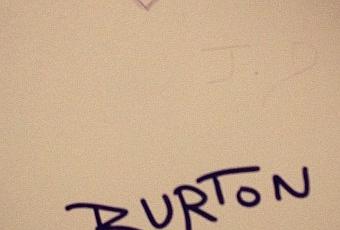 J.D
BURTON